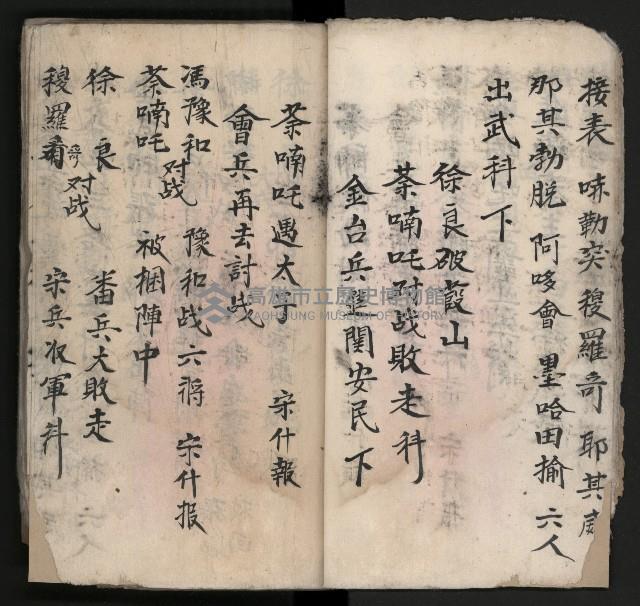 接表 咊勒突 稷羅奇 耶其
那其勃脫 阿哆會 墨哈田揄 六人
出武科下
徐良破霞山
荼喃吒对战敗走科
金台兵 闺安民下
荼喃吒遇太子 宋什報
會兵再去討战
馮豫和 对战 豫和战六將 宋什报
荼喃吒 被捆陣中
徐良 对战 番兵大敗走
稷羅奇 宋兵收軍科
高雄市立歷史博物館
KAOHSIUNG MUSEUM OF HISTORY